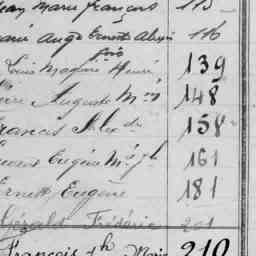 Jean Marie François 115
Marie Augte Ernest Alexis 116
fois
Louis Maxime Henri 139
Auguste Mie 148
Francis Alexdre 158
Eugène Mie Jh 161
Ernest Eugène 181
Gérald Frédéric 201
François Jh Marie 210